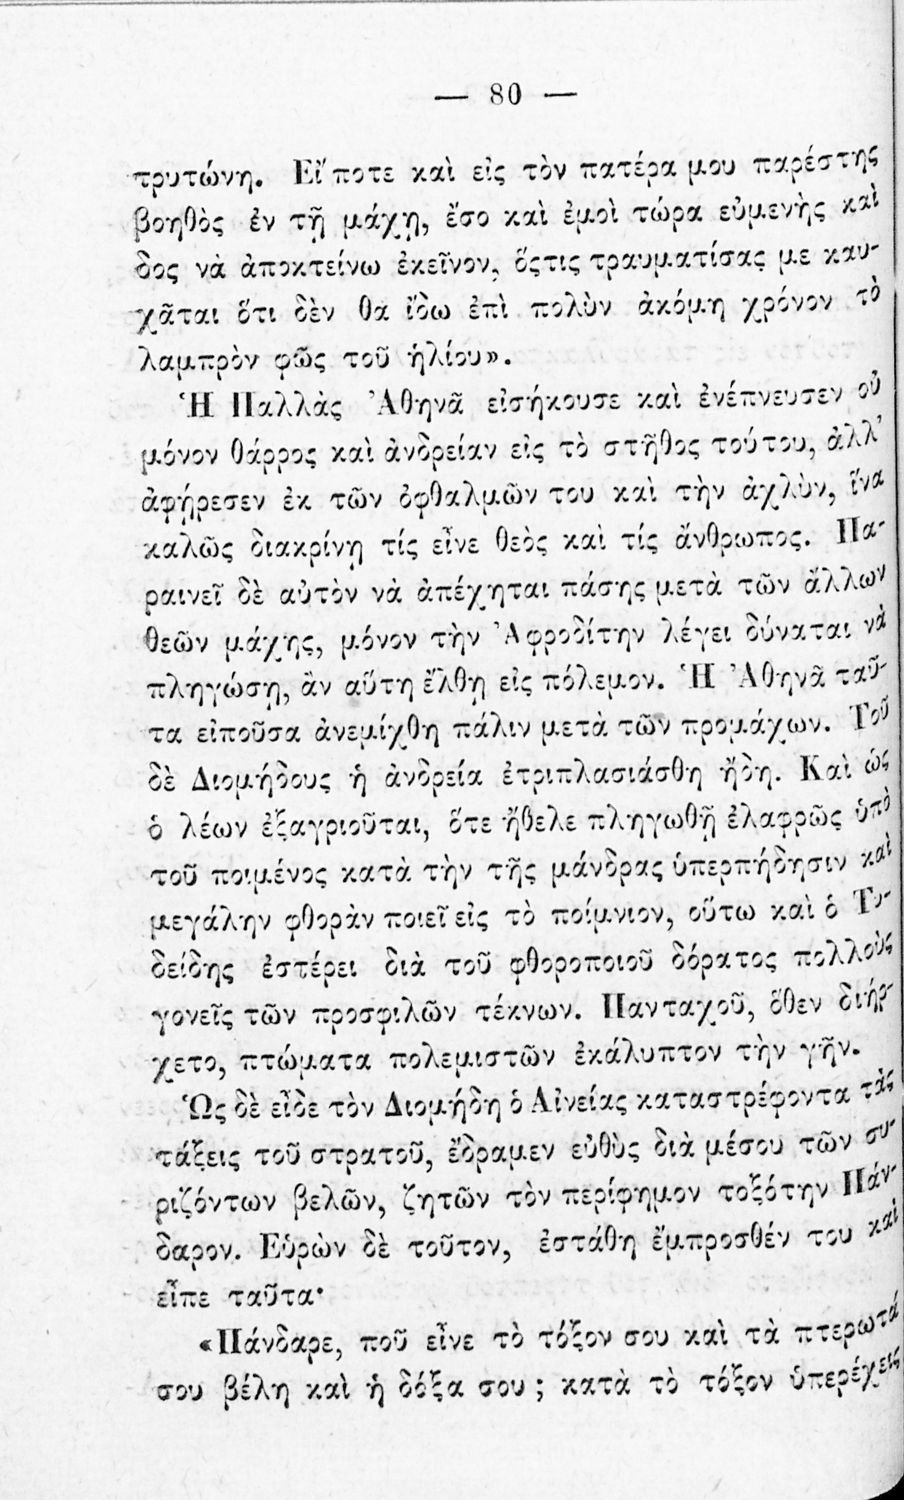 — 80 —
τρυτώνη. Εἴ ποτε καὶ εἰς τὸν πατέρα μου παρέστης
βοηθὸς ἐν τῇ μάχῃ, ἔσο καὶ ἐμοὶ τώρα εὐμενὴς καὶ
δος νὰ ἀποκτείνω ἐκεῖνον, ὅςτις τραυματίσας με καυ-
χᾶται ὅτι δὲν θα ἴδω ἐπὶ πολὺν ἀκόμη χρόνον τὸ
λαμπρὸν φῶς τοῦ ἡλίου».
Ἡ Παλλὰς Ἀθηνᾶ εἰσήκουσε καὶ ἐνέπνευσεν οὐ
μόνον θάρρος καὶ ἀνδρείαν εἰς τὸ στῆθος τούτου, ἀλλ'
ἀφῄρεσεν ἐκ τῶν ὀφθαλμῶν του καὶ τὴν ἀχλὺν, ἵνα
καλῶς διακρίνῃ τίς εἶνε θεὸς καὶ τίς ἄνθρωπος. Πα-
ραινεῖ δὲ αὐτὸν νὰ ἀπέχηται πάσης μετὰ τῶν ἄλλων
θεῶν μάχης, μόνον τὴν Ἀφροδίτην λέγει δύναται νὰ
πληγώσῃ, ἂν αὕτη ἔλθῃ εἰς πόλεμον. Ἡ Ἀθηνᾶ ταῦ-
τα εἰποῦσα ἀνεμίχθη πάλιν μετὰ τῶν προμάχων. Τοῦ
δὲ Διομήδους ἡ ἀνδρεία ἐτριπλασιάσθη ἤδη. Καὶ ὡς
ὁ λέων ἐξαγριοῦται, ὅτε ἤθελε πληγωθῇ ἐλαφρῶς ὑπὸ
τοῦ ποιμένος κατὰ τὴν τῆς μάνδρας ὑπερπήδησιν καὶ
μεγάλην φθορὰν ποιεῖ εἰς τὸ ποίμνιον, οὕτω καὶ ὁ Τυ-
δείδης ἐστέρει διὰ τοῦ φθοροποιοῦ δόρατος πολλοὺς
γονεῖς τῶν προσφιλῶν τέκνων. Πανταχοῦ, ὅθεν διήρ-
χετο, πτώματα πολεμιστῶν ἐκάλυπτον τὴν γῆν.
Ὡς δὲ εἶδε τὸν Διομήδη ὁ Αἰνείας καταστρέφοντα τὰς
τάξεις τοῦ στρατοῦ, ἔδραμεν εὐθὺς διὰ μέσου τῶν συ-
ριζόντων βελῶν, ζητῶν τὸν περίφημον τοξότην Πάν-
δαρον. Εὑρὼν δὲ τοῦτον, ἐστάθη ἔμπροσθέν του καὶ
εἶπε ταῦτα·
«Πάνδαρε, ποῦ εἶνε τὸ τόξον σου καὶ τὰ πτερωτά
σου βέλη καὶ ἡ δόξα σου ; κατὰ τὸ τόξον ὑπερέχεις